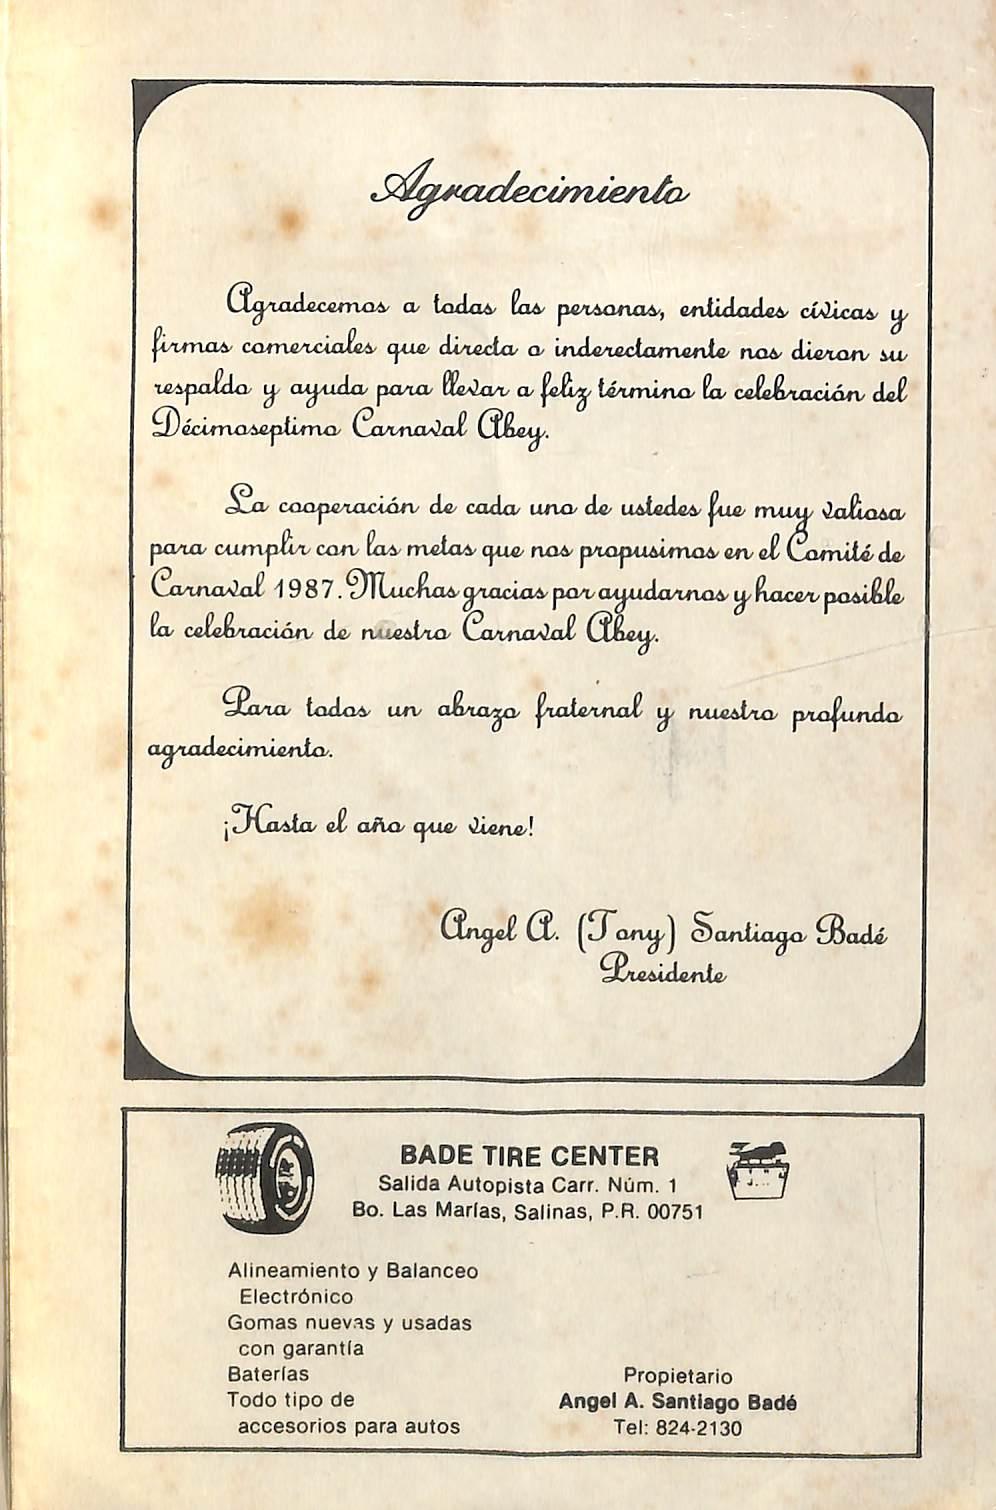 Agradecimiento
Agradecemos a todas las personas, entidades cívicas y
firmas comerciales que directa o inderectamente nos dieron su
respaldo y ayuda para llevar a feliz término la celebración del
Décimoseptimo Carnaval Abey.
La cooperación de cada uno de ustedes fue muy valiosa
para cumplir con las metas que nos propusimos en el Comité de
Carnaval 1987. Muchas gracias por ayudarnos y hacer posible
la celebración de nuestro Carnaval Abey.
Para todos un abrazo fraternal y nuestro profundo
agradecimiento.
¡Hasta el año que viene!
Angel A. (Tony) Santiago Badé
Presidente
BADE TIRE CENTER
Salida Autopista Carr. Núm. 1
Bo. Las Marías, Salinas, P.R. 00751
Alineamiento y Balanceo
Electrónico
Gomas nuevas y usadas
con garantía
Baterías
Todo tipo de
accesorios para autos
Propietario
Angel A. Santiago Badé
Tel: 824-2130